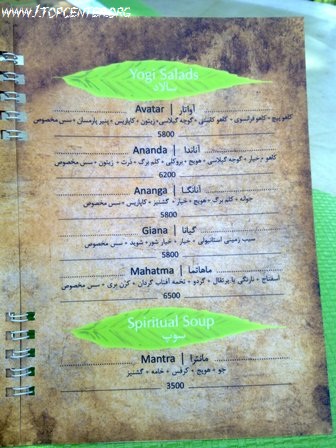 www.1TOPCENTER.ORG
Yogi Salads
سالاد
Avatar | آواتار
کاهو پیچ • کاهو فرانسوی • کاهو کاستی • گوجه گیلاسی • زیتون • کاپاریس • پنیر پارمسان • سس مخصوص
5800
Ananda | آناندا
کاهو • خیار • گوجه گیلاسی • هویج • بروکلی • کلم برگ • ذرت • زیتون • سس مخصوص
6200
Ananga | آنانگا
جوانه • کلم برگ • هویج • خیار • گشنیز • کاپاریس • سس مخصوص
5800
Giana | گیانا
سیب زمینی استانبولی • خیار • خیار شور • شوید • سس مخصوص
5800
Mahatma | ماهاتما
اسفناج • نارنگی یا پرتقال • گردو • تخمه آفتاب گردان • کرن بری • سس مخصوص
6500
Spiritual Soup
سوپ
Mantra | مانترا
جو • هویج • کرفس • خامه • گشنیز
3500